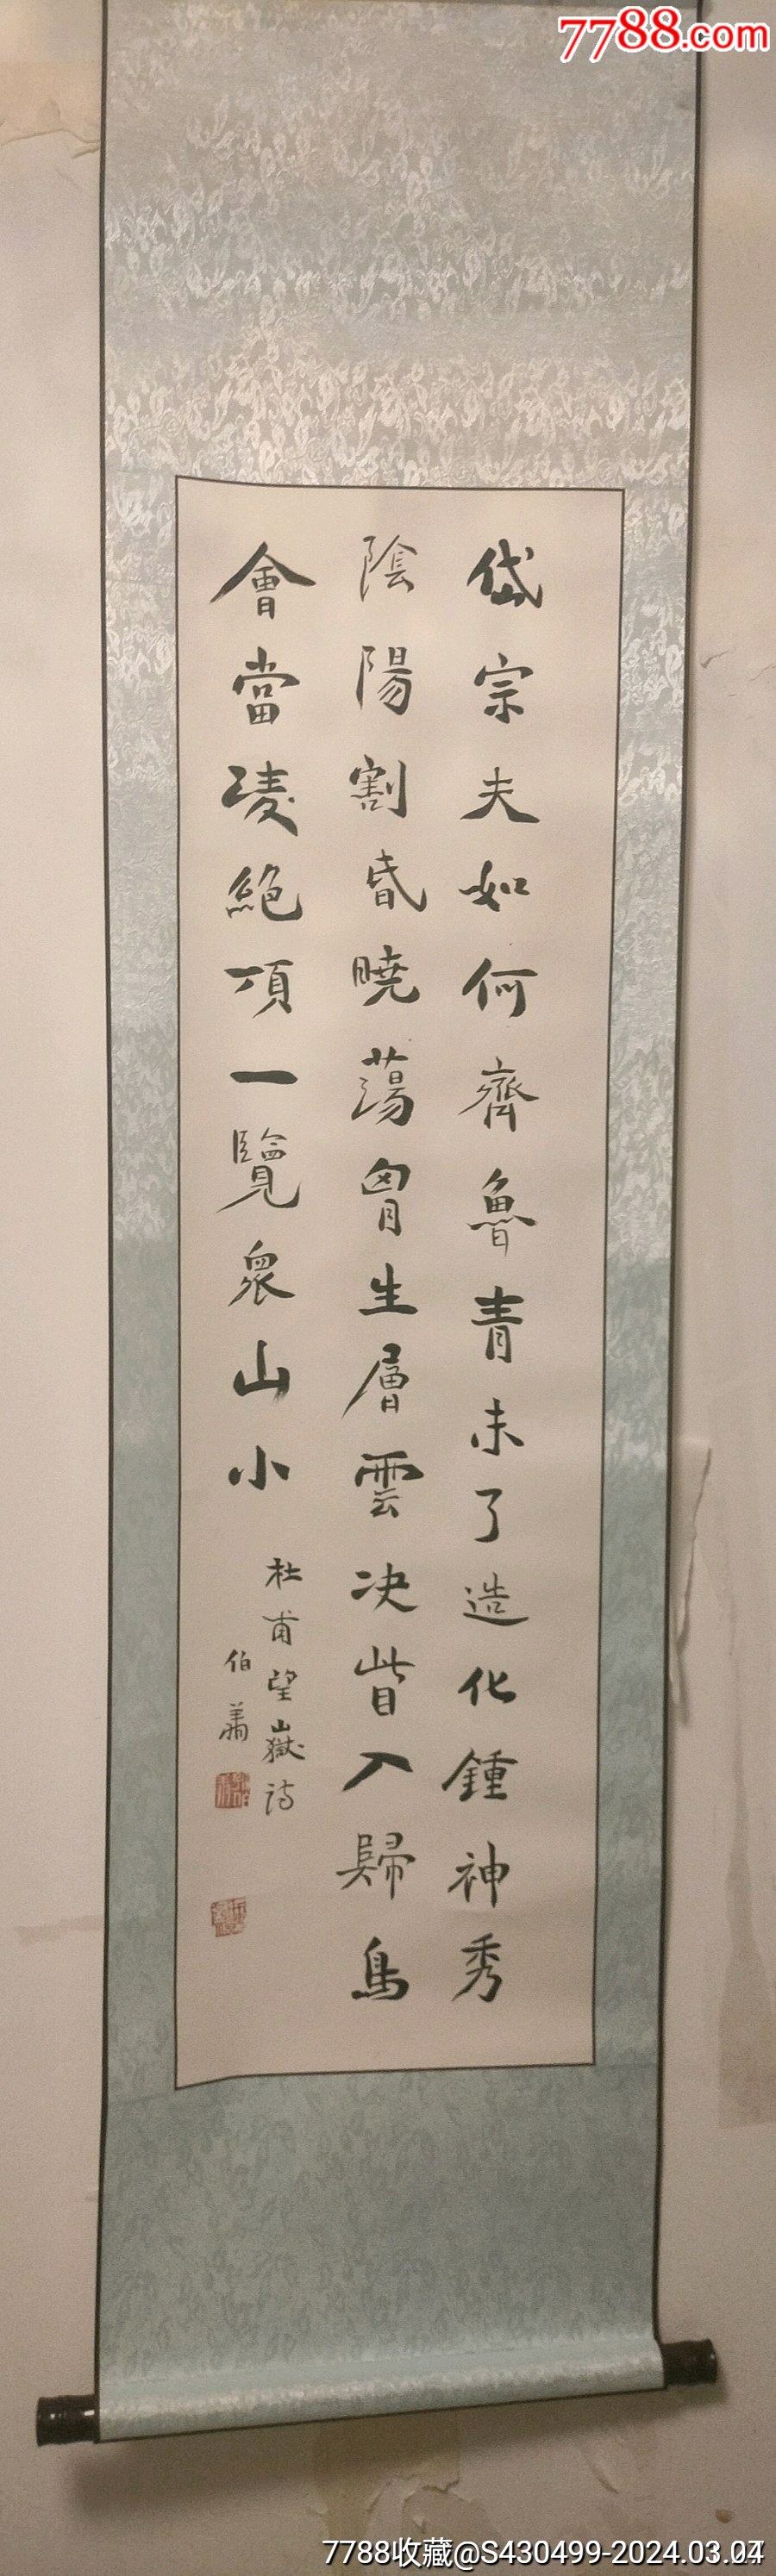 7788.com
岱宗夫如何齊魯青未了造化鍾神秀
陰陽割昏曉蕩胷生層雲決眥入歸鳥
會當凌絕頂一覽衆山小
杜甫望嶽詩
伯
7788收藏@S430499-2024.03.04